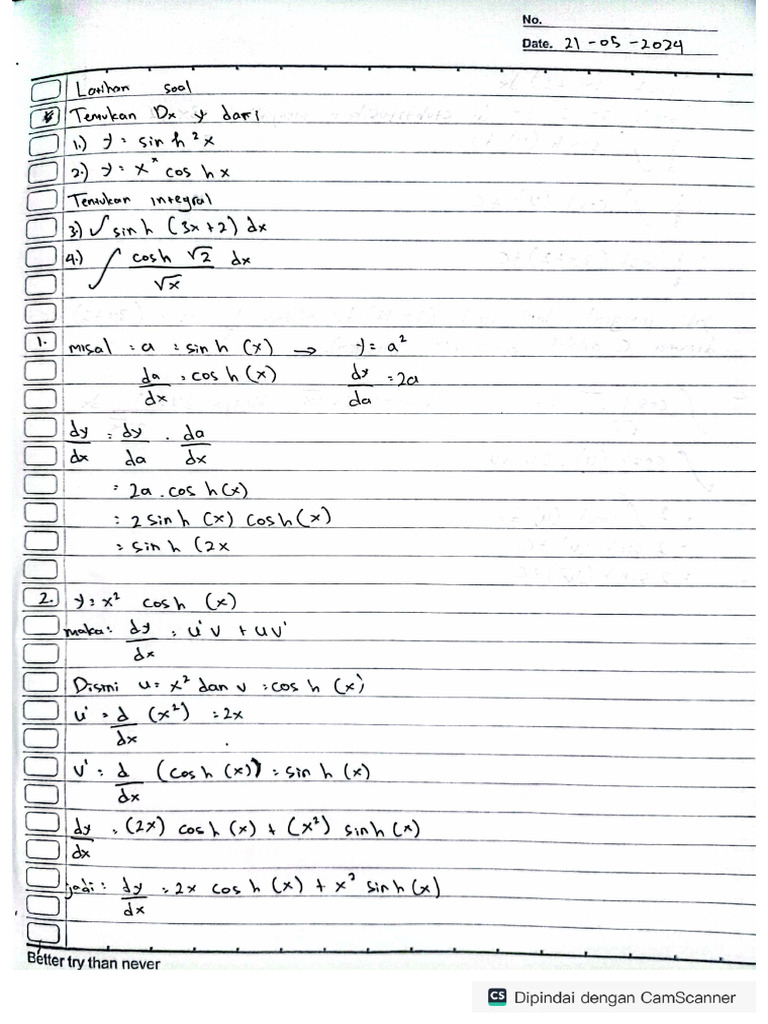 No.
Date. 21 - 05 - 2024
Latihan soal
* Temukan Dx y dari
1.) y = sin h² x
2.) y = xˣ cos h x
Temukan integral
3) ∫ sin h (3x + 2) dx
4.) ∫ cosh √2 / √x dx
1. misal = a = sin h (x) → y = a²
da/dx = cos h (x) dy/da = 2a
dy/dx = dy/da . da/dx
= 2a . cos h (x)
= 2 sin h (x) cosh (x)
= sin h (2x
2. y = x² cos h (x)
maka: dy/dx = u'v + uv'
Disini u = x² dan v = cos h (x)
u' = d/dx (x²) = 2x
v' = d/dx (cos h (x)) = sin h (x)
dy/dx = (2x) cos h (x) + (x²) sin h (x)
jadi: dy/dx = 2x cos h (x) + x² sin h (x)
Better try than never
CS Dipindai dengan CamScanner